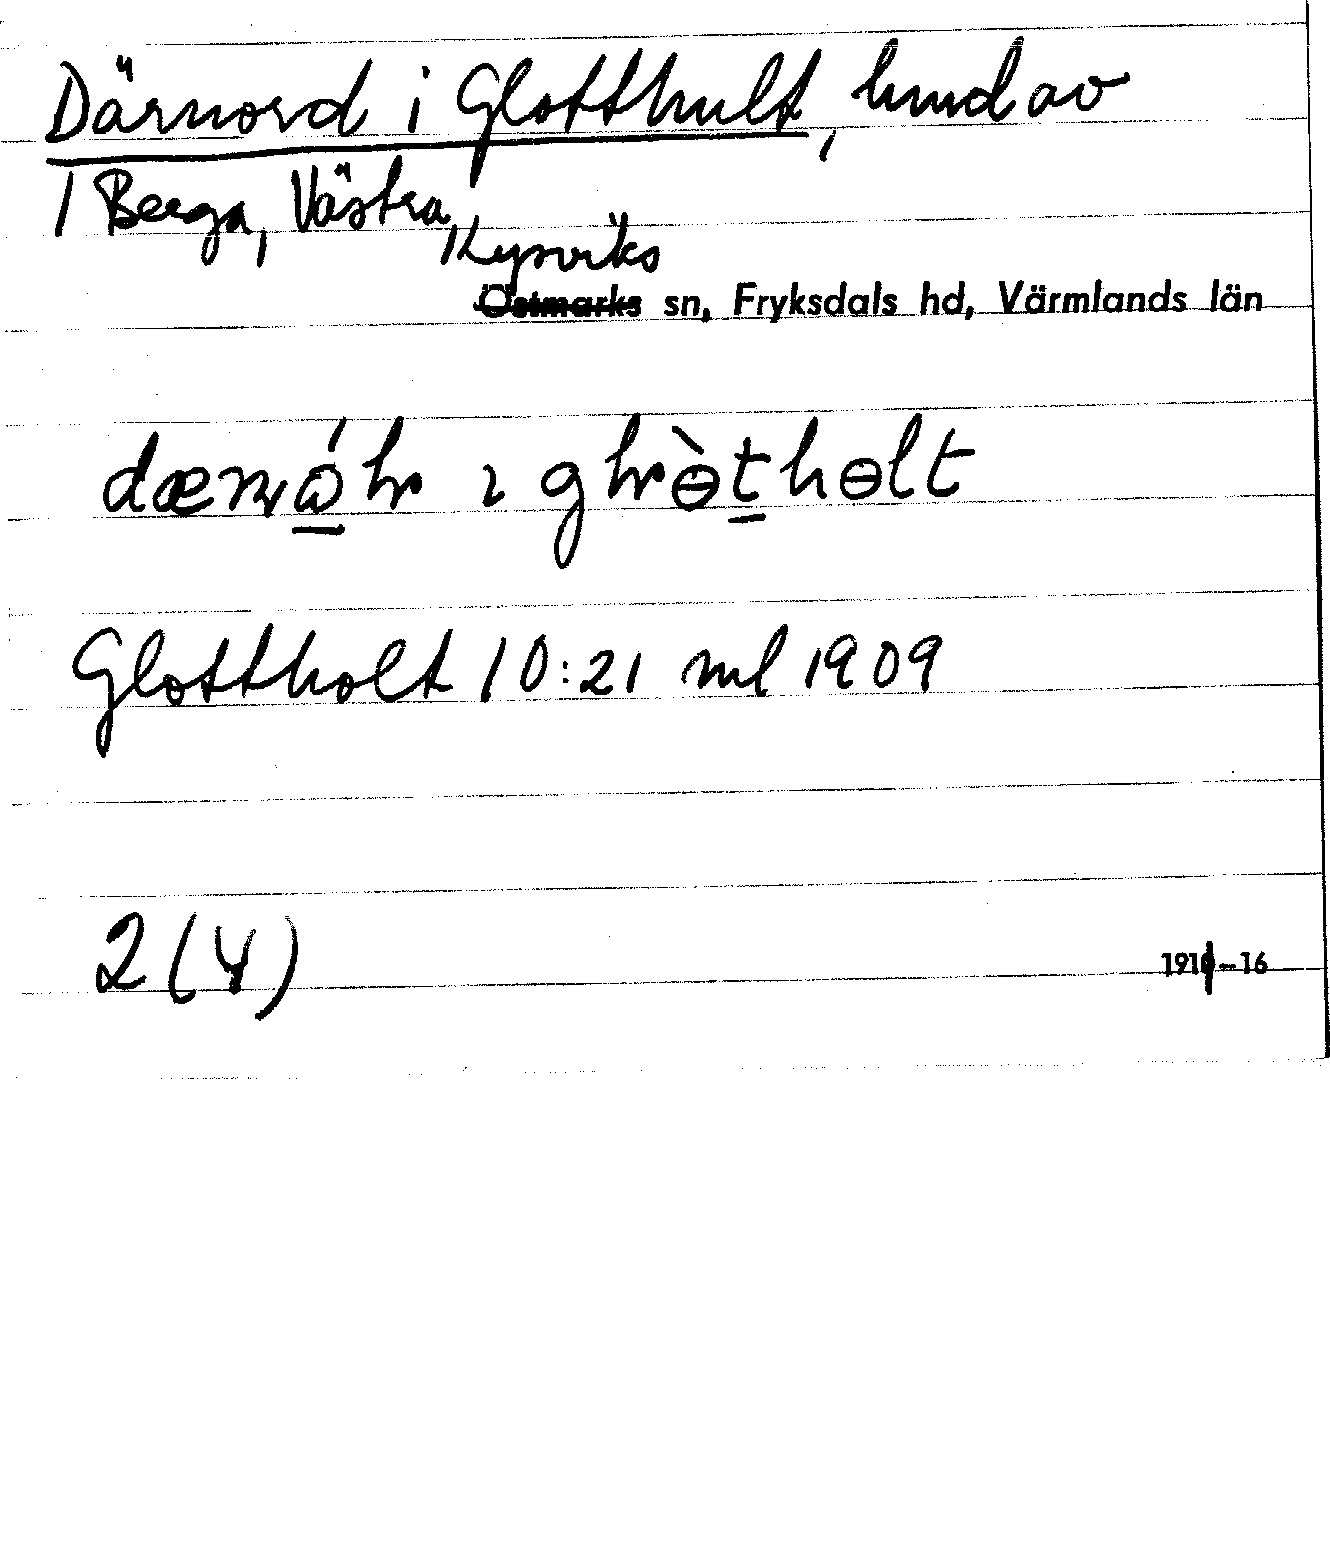 Därnord i Glotthult, hmd av
/ Berga, Västra,
Kymviks
Östmarks sn, Fryksdals hd, Värmlands län
Glottholt 10:21 ml 1909
2 (4)
1911-16